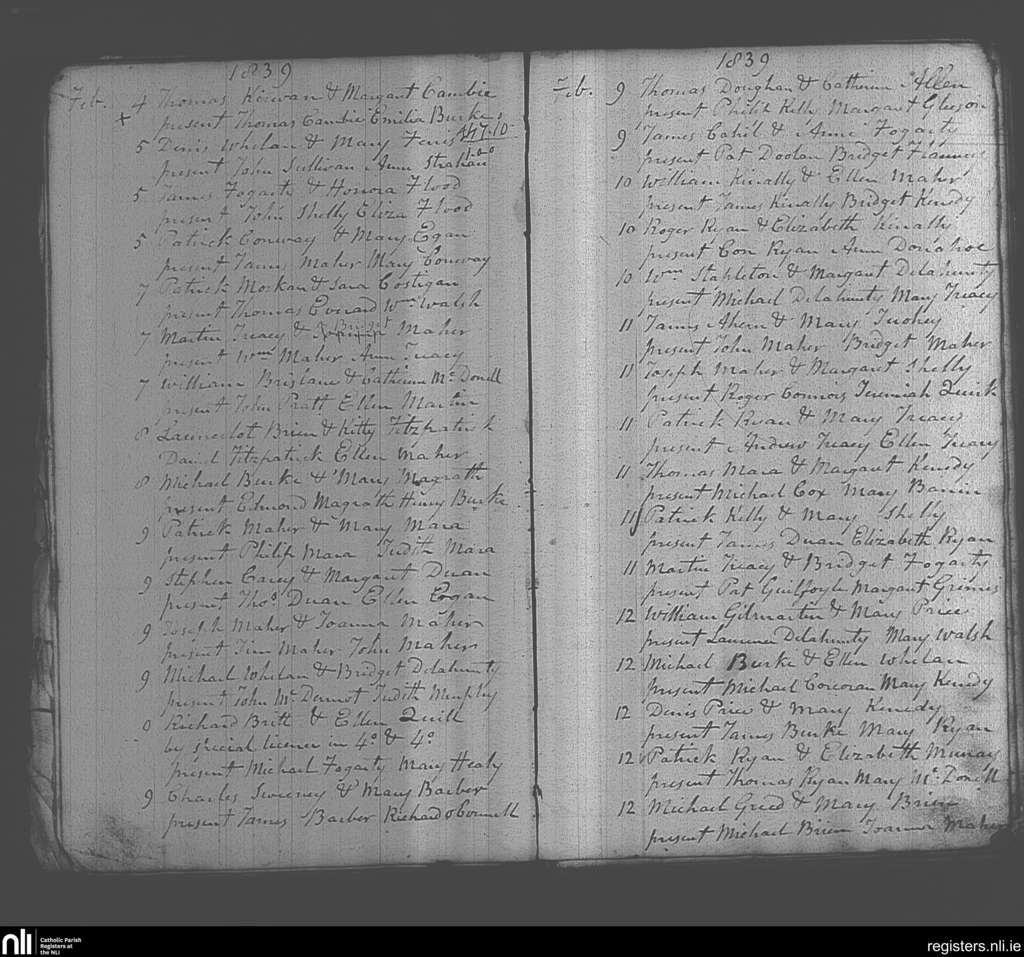 1839
Feb. 4 Thomas Kirwan & Margaret Cambie
x present Thomas Cambie Emilia Burke
5 Denis Whelan & Mary
present John Sullivan Ann Strahan
5 James Fogarty & Honora Flood
present John Shelly Eliza Flood
5 Patrick Conway & Mary Egan
present James Maher Mary Conway
7 Patrick Morkan & Sara Costigan
present Thomas Everard Wm Walsh
7 Martin Treacy & Bridgt Maher
present Wm Maher Ann Treacy
7 William Brislane & Catherine McDonell
present John Pratt Ellen Martin
8 Launcelot Brien & Kitty Fitzpatrick
David Fitzpatrick Ellen Maher
8 Michael Burke & Mary Magrath
present Edmond Magrath Henry Burke
9 Patrick Maher & Mary Mara
present Philip Mara Judith Mara
9 Stephen Carey & Margaret Duan
present Thos Duan Ellen Eogan
9 Joseph Maher & Joanna Maher
present Tim Maher John Maher
9 Michael Whelan & Bridget Delahunty
present John McDermot Judith Murphy
0 Richard Britt & Ellen Quill
by special licence in 4o & 4o
present Michael Fogarty Mary Healy
9 Charles Sweeney & Mary Barber
present James Barber Richard O Connell
1839
Feb. 9 Thomas Doughan & Catherine Allen
present Philip Kelly Margaret Gleeson
9 James Cahil & Anne Fogarty
present Pat Doolan Bridget
10 William Kinally & Ellen Maher
present James Kinally Bridget Kenedy
10 Roger Ryan & Elizabeth Kinally
present Con Ryan Ann Donahoe
10 Wm Stapleton & Margaret Delahunty
present Michael Delahunty Mary Treacy
11 James Ahern & Mary Tuohey
present John Maher Bridget Maher
11 Joseph Maher & Margaret Shelly
present Roger Connors Jeremiah Quirk
11 Patrick Ryan & Mary Treacy
present Andrew Treacy Ellen Treacy
11 Thomas Mara & Margaret Kenedy
present Michael Cox Mary
11 Patrick Kelly & Mary Shelly
present James Duan Elizabeth Ryan
11 Martin Treacy & Bridget Fogarty
present Pat Guilfoyle Margaret Grimes
12 William Gilmartin & Mary Price
present Laurence Delahunty Mary Walsh
12 Michael Burke & Ellen Whelan
present Michael Corcoran Mary Kenedy
12 Denis Price & Mary Kenedy
present James Burke Mary Ryan
12 Patrick Ryan & Elizabeth Murray
present Thomas Ryan Mary McDonell
12 Michael Greed & Mary Brien
present Michael Brien Joanna Maher
nli Catholic Parish
Registers at
the NLI
registers.nli.ie